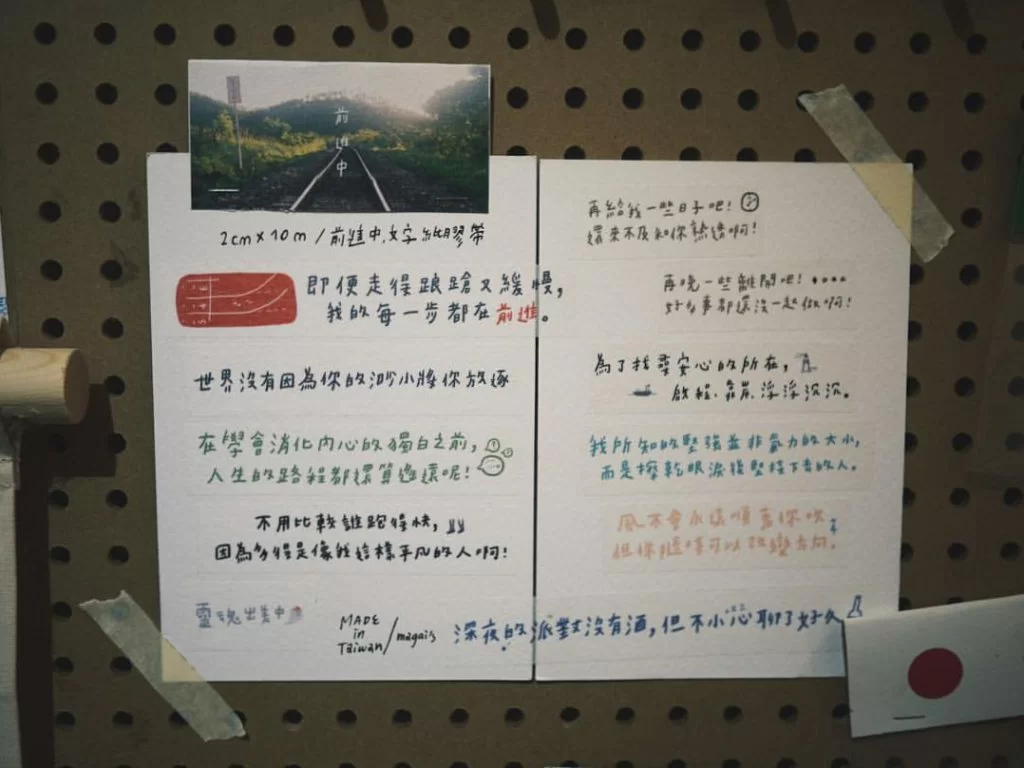 前進中
2cm × 10m / 前進中.文字紙膠帶
即便走得踉蹌又緩慢，
我的每一步都在前進。
世界沒有因為你的渺小將你放逐
在學會消化內心的獨白之前，
人生的路程都還算遙遠呢！
不用比較誰跑得快，
因為多得是像我這樣平凡的人啊！
靈魂出差中
MADE
in
Taiwan / magais
深夜的派對沒有酒，但不小心聊了好久
再給我一些日子吧！
還來不及和你熟透啊！
再晚一些離開吧！
好多事都還沒一起做啊！
為了找尋安心的所在，
啟程、靠岸、浮浮沉沉。
我所知的堅強並非氣力的大小，
而是擦乾眼淚後堅持下去的人。
風不會永遠順著你吹，
但你隨時可以改變方向。